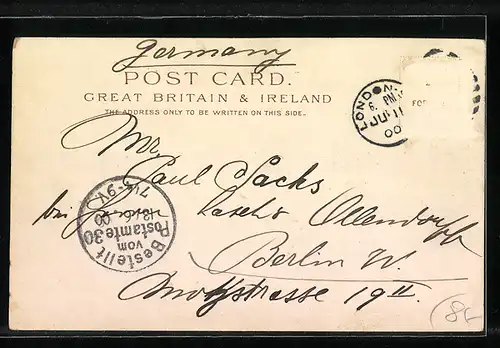 Germany
POST CARD.
GREAT BRITAIN & IRELAND
THE ADDRESS ONLY TO BE WRITTEN ON THIS SIDE.
FOR
LONDON
6. PM
JU 11
00
Mr.
Paul Sachs
bei Ollendorff
Berlin W.
19 II
Bestellt
vom
Postamte 30
00
7¼-9V